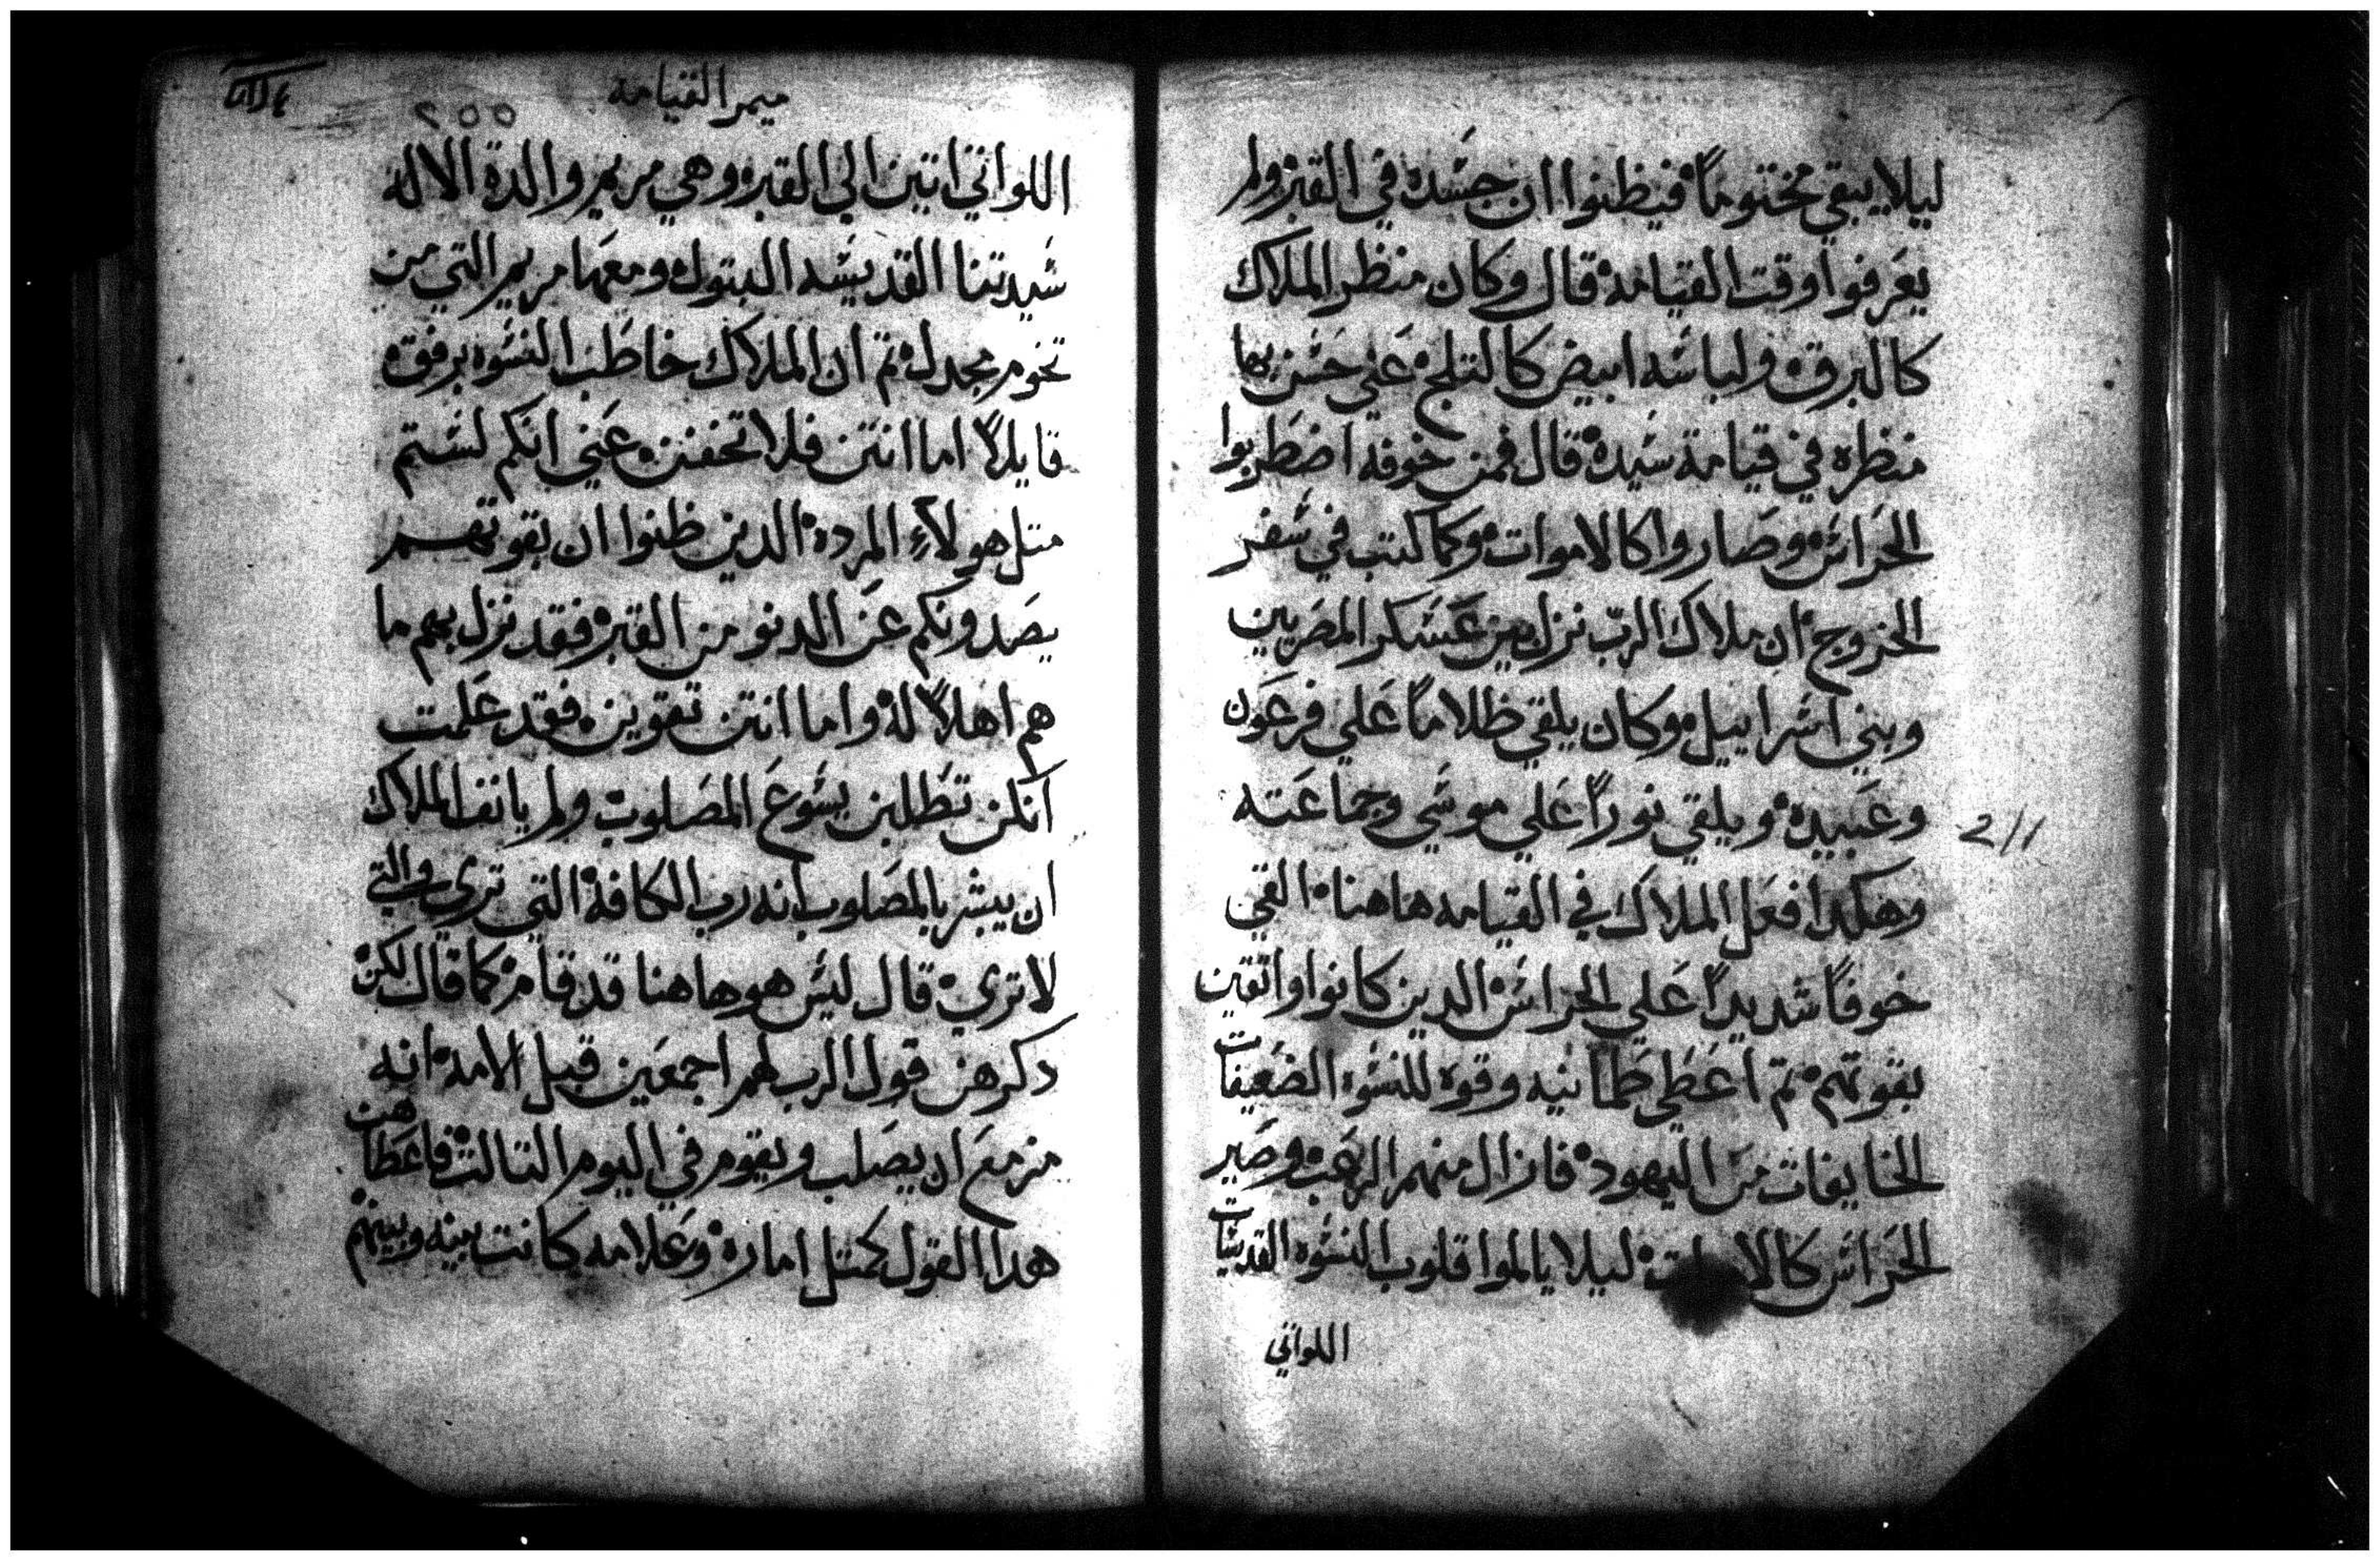 ليلا يبقي مختوماً فيظنوا ان جسده في القبر ولم
يعرفوا وقت القيامه قال وكان منظر الملاك
كالبرق ولباسه ابيض كالتلج عني حسن بها
منظره في قيامة سيده قال فمن خوفه اضطربوا
الحراس وصاروا كالاموات وكما كتب في سفر
الخروج ان ملاك الرب نزل بين عسكر المصريين
وبني اسراييل وكان يلقي ظلاماً علي فرعون
وعبيده ويلقي نوراً علي موسي وجماعته
وهكدا فعل الملاك في القيامه هاهنا القي
خوفاً شديداً علي الحراس الدين كانوا واتقين
بقوتهم تم اعطي طمانيه وقوه للنسوه الضعيفات
الخايفات من اليهود فازال منهم الرعب وصير
الحراس كالاموات ليلا يالموا قلوب النسوه القديسات
اللواتي
ميمر القيامة
٢٥٥
اللواتي اتين الي القبر وهي مريم والدة الاله
سيدتنا القديسه البتول ومعها مريم التي من
تخوم مجدل تم ان الملاك خاطب النسوه برفق
قايلاً اما انتن فلا تخفن عني انكم لستم
متل هولآء المرده الدين ظنوا ان بقوتهم
يصدونكم عن الدنو من القبر فقد نزل بهم ما
هم اهلاً له واما انتن تقوين فقد علمت
انكن تطلبن يسوع المصلوب ولم يانف الملاك
ان يبشر بالمصلوب انه رب الكافة التي تري والتي
لا تري قال ليس هو هاهنا قد قام كما قال لكن
دكرهن قول الرب لهم اجمعين قبل الامه انه
مزمع ان يصلب ويقوم في اليوم التالت فاعطاهن
هدا القول كمتل اماره وعلامه كانت بينه وبينهم